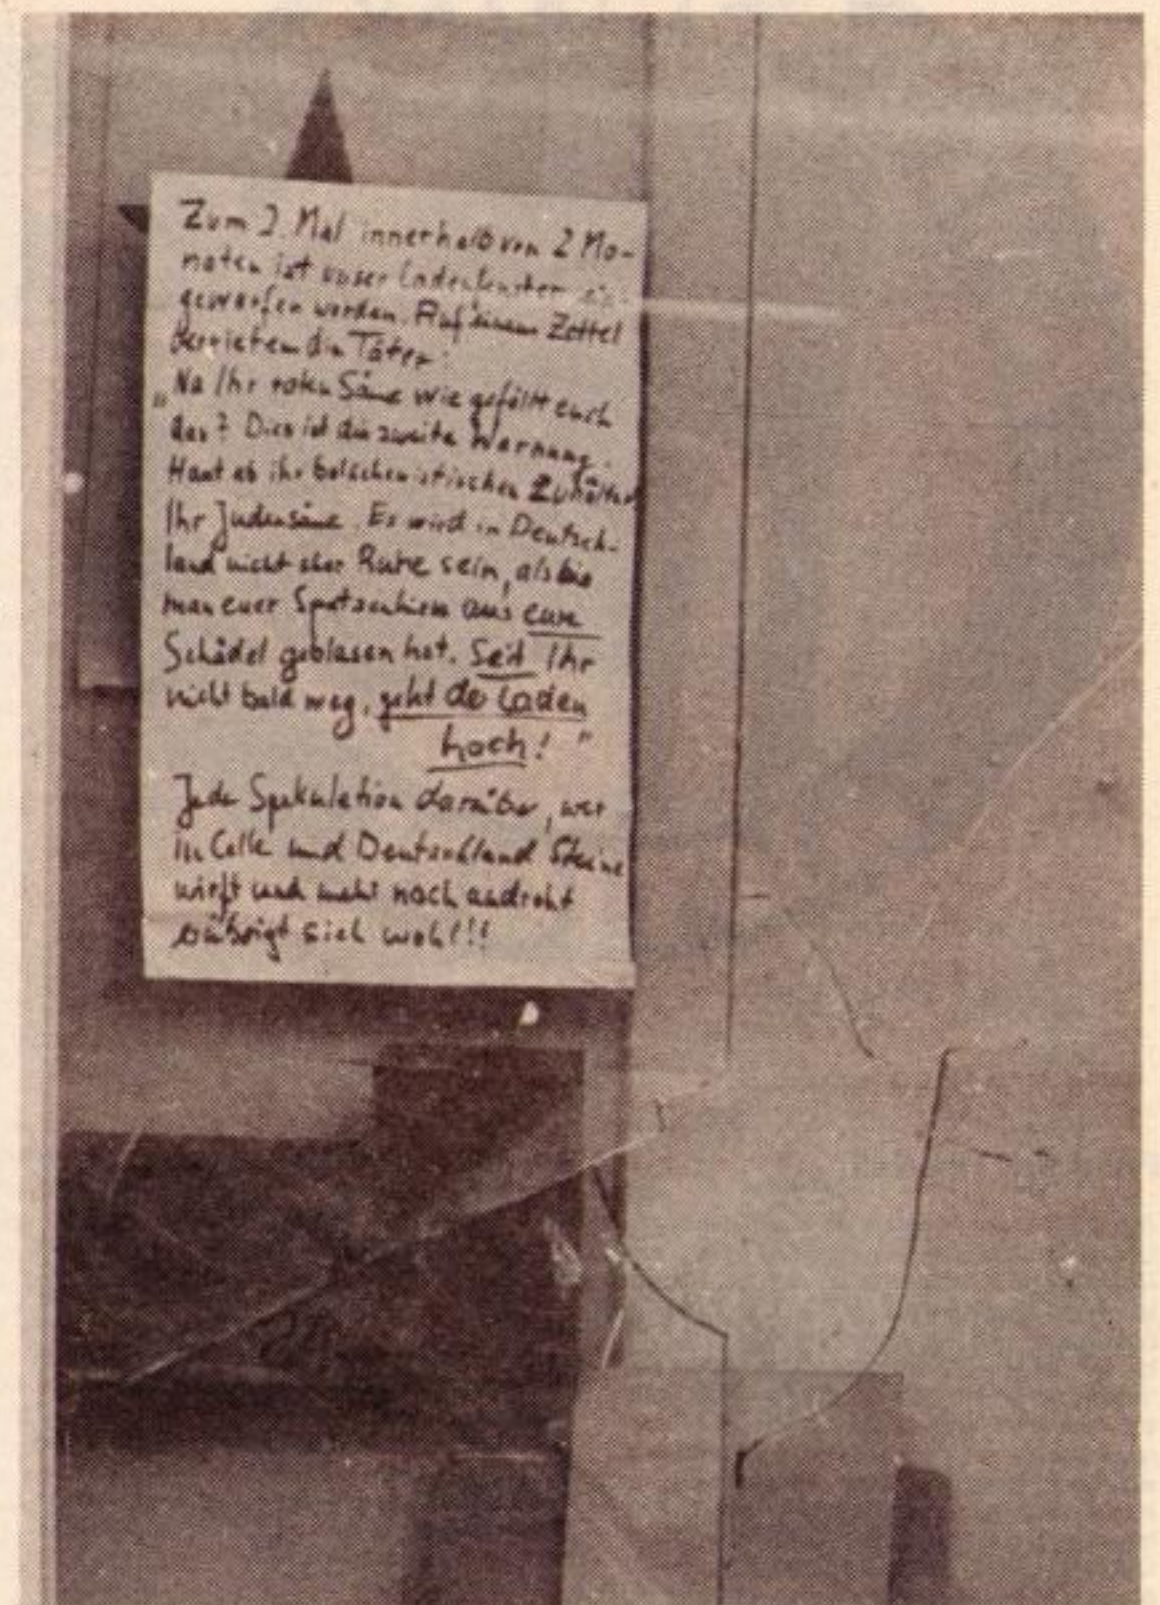 Zum 2. Mal innerhalb von 2 Mo-
naten ist unser Ladenfenster ein-
geworfen worden. Auf einem Zettel
verrieten die Täter:
„Na Ihr roten Säue wie gefällt euch
das? Dies ist die zweite Warnung.
Haut ab ihr bolschewistischen Zuhälter
Ihr Judensäue. Es wird in Deutsch-
land nicht eher Ruhe sein, als bis
man euer Spatzenhirn aus eure
Schädel geblasen hat. Seit Ihr
nicht bald weg, geht de Laden
hoch! "
Jede Spekulation darüber, wer
in Celle und Deutschland Steine
wirft und mehr noch androht
erübrigt sich wohl!!